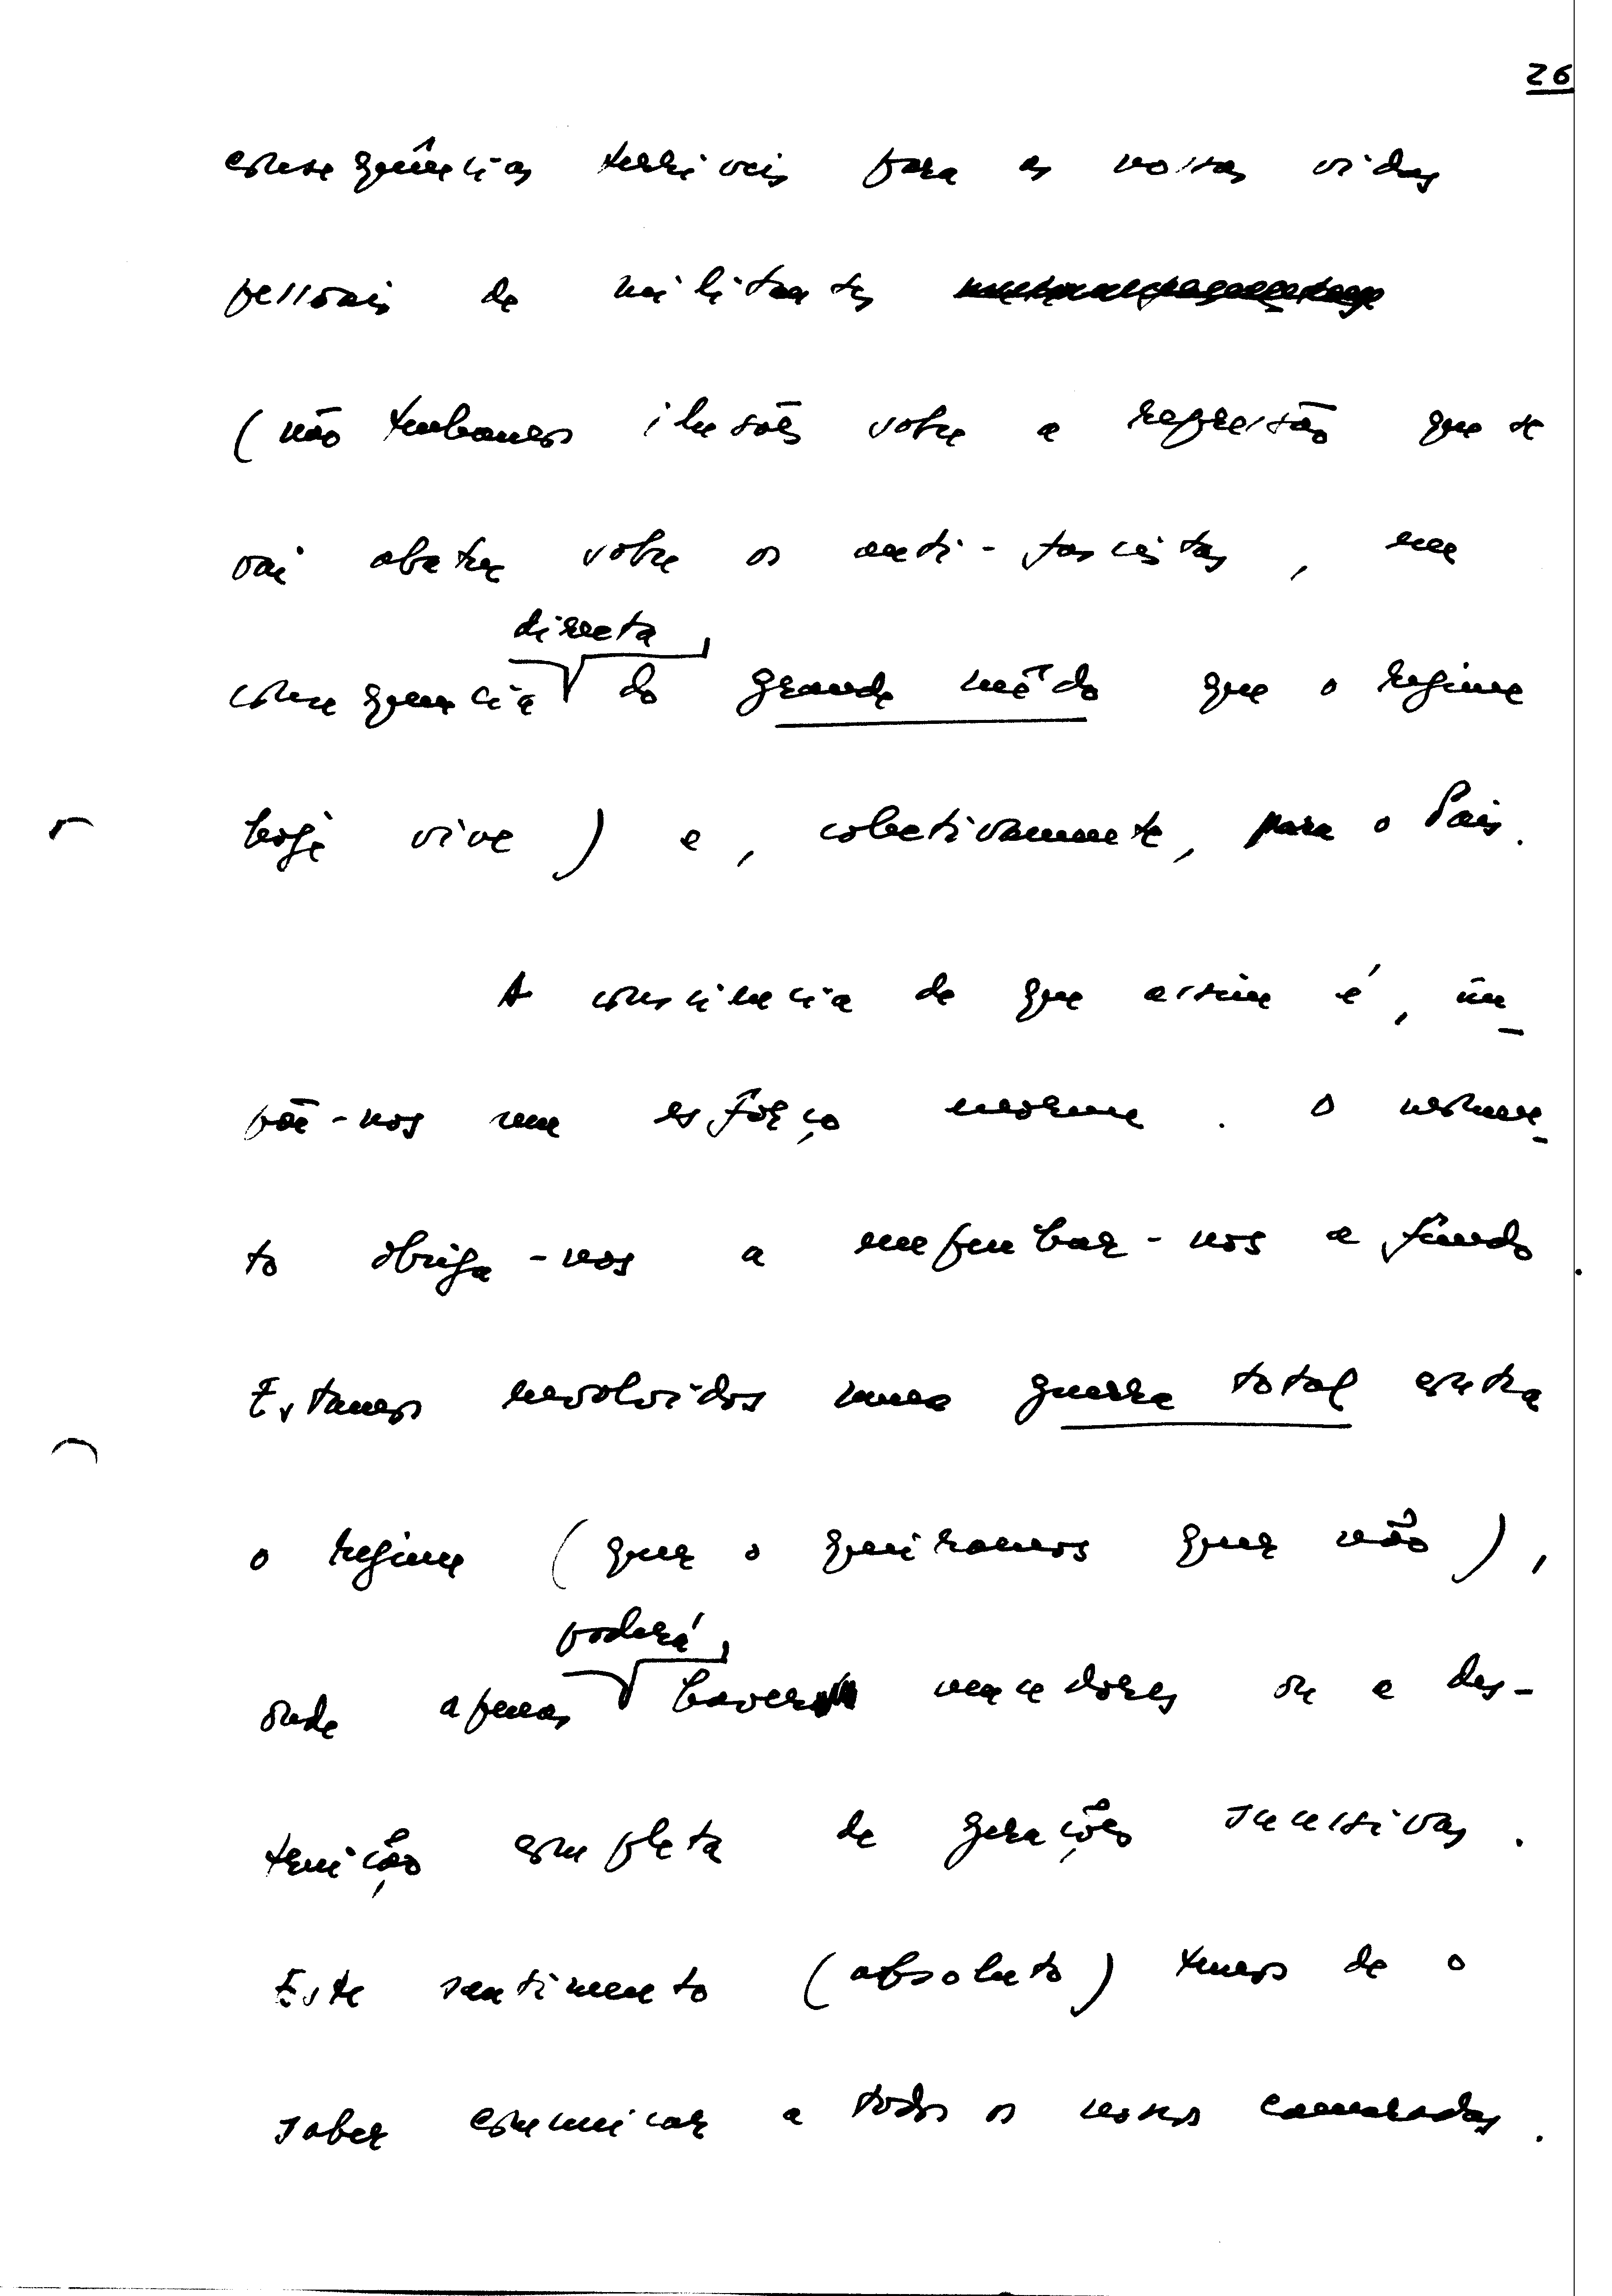 26
consequências terríveis para as nossas vidas
pessoais de militantes
(não tenhamos ilusões sobre a repressão que se
vai abater sobre os anti-fascistas, em
directa
consequencia do grande mêdo que o regime
hoje vive) e, colectivamente, para o País.
A consciencia de que assim é, im-
põe-nos um esfôrço enorme. O momen-
to obriga-nos a empenhar-nos a fundo
Estamos envolvidos numa guerra total contra
o regime (quer o queiramos quer não),
poderá
onde apenas haver vencedores ou a des-
truição completa de gerações sucessivas.
Este sentimento (absoluto) temos de o
saber comunicar a todos os nossos camaradas.